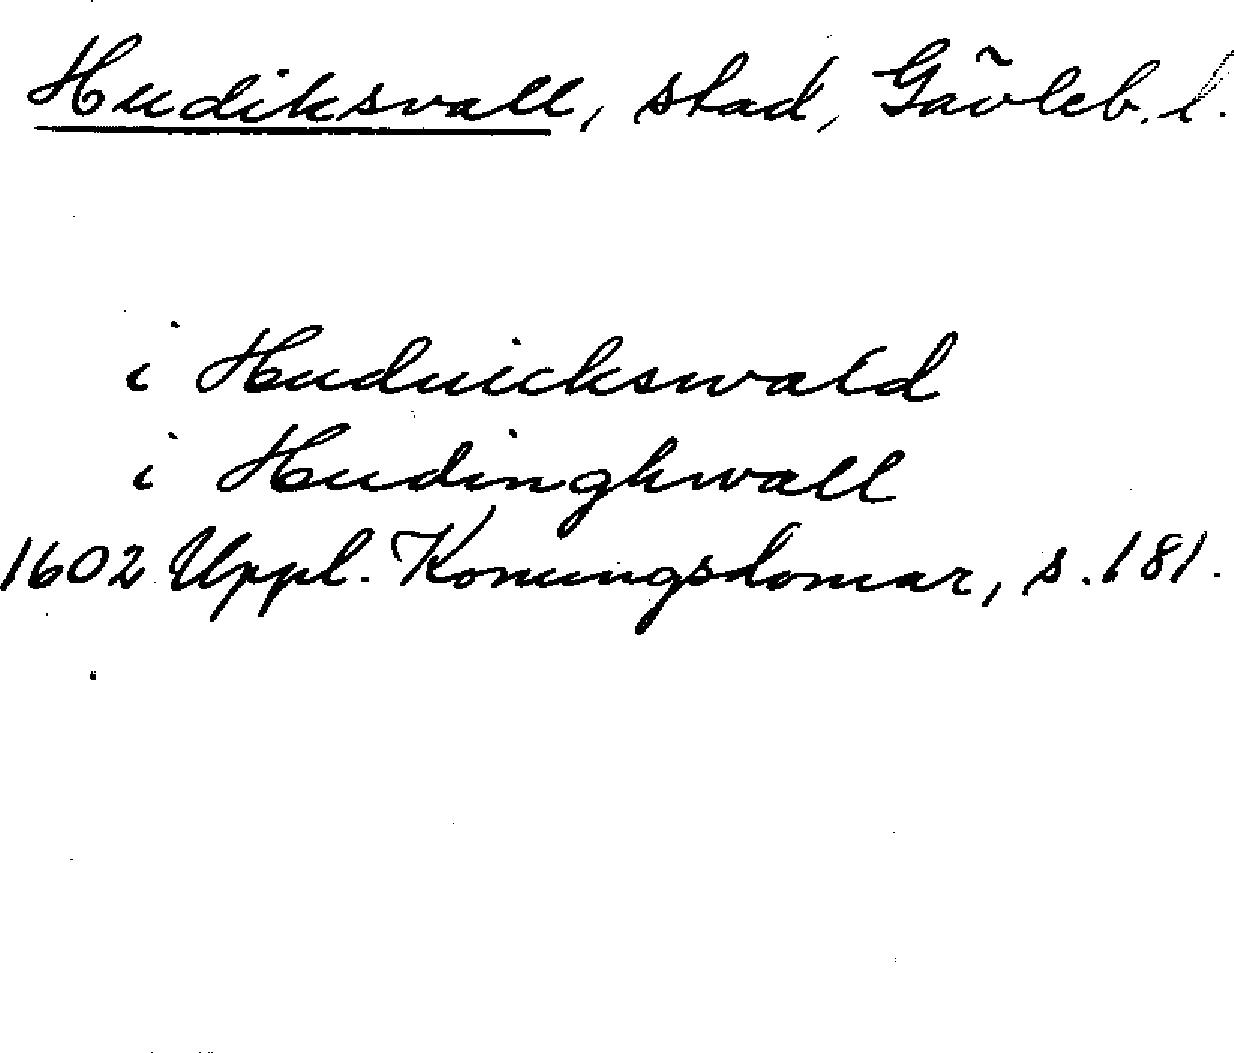 Hudiksvall, stad, Gävleb. l.
i Hudwickswald
i Hudinghwall
1602 Uppl. Konungsdomar, s. 181.